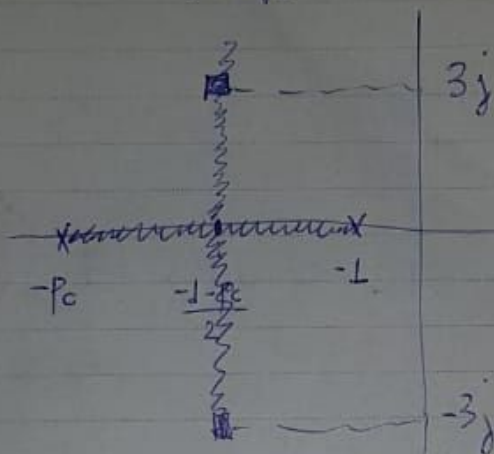 3j
-Pc
-1-Pc
-1
2
-3j